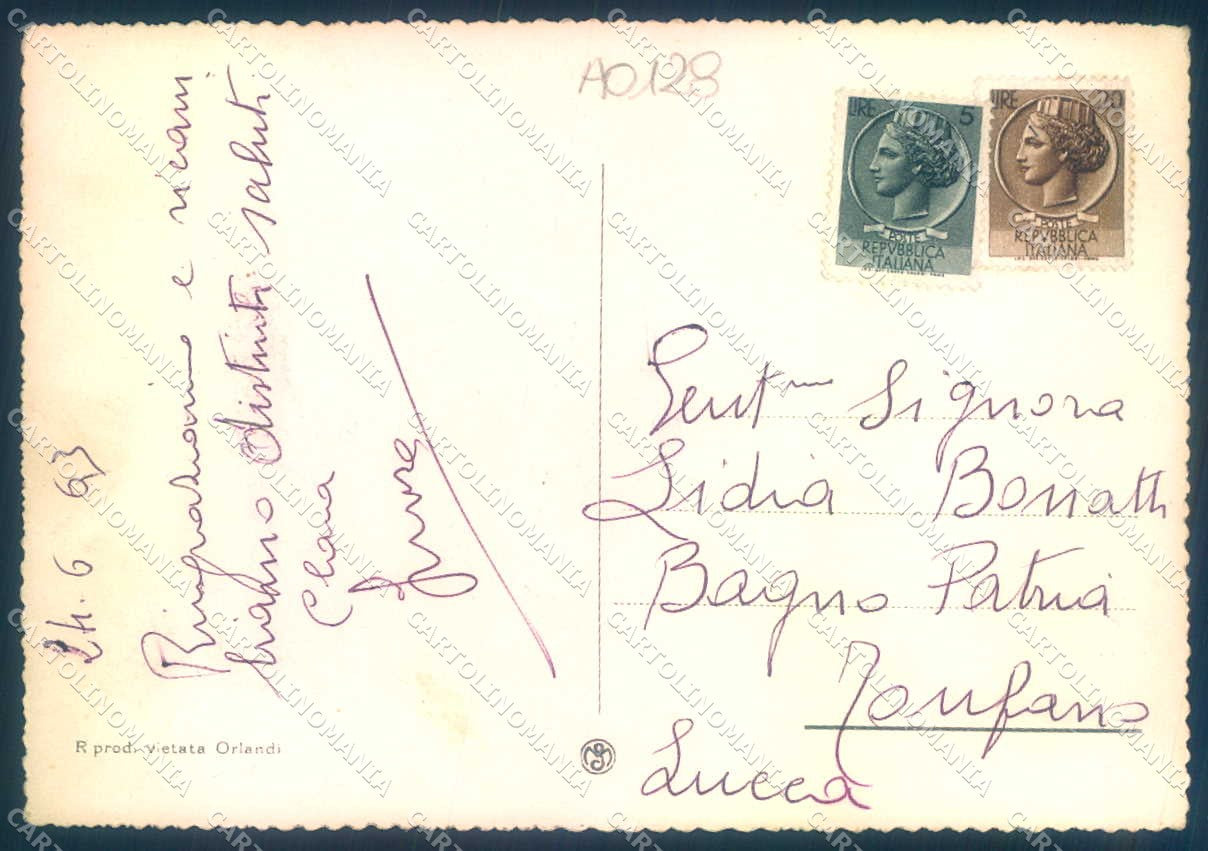 A0129
LIRE 5
POSTE
REPVBBLICA
ITALIANA
LIRE 20
POSTE
REPVBBLICA
ITALIANA
24. 6 63
Ringraziamo e ricam
biamo distinti saluti
Clara
Gent.ma Signora
Lidia Bonatti
Bagno Patria
Tonfano
Lucca
R prod. vietata Orlandi
CARTOLINOMANIA